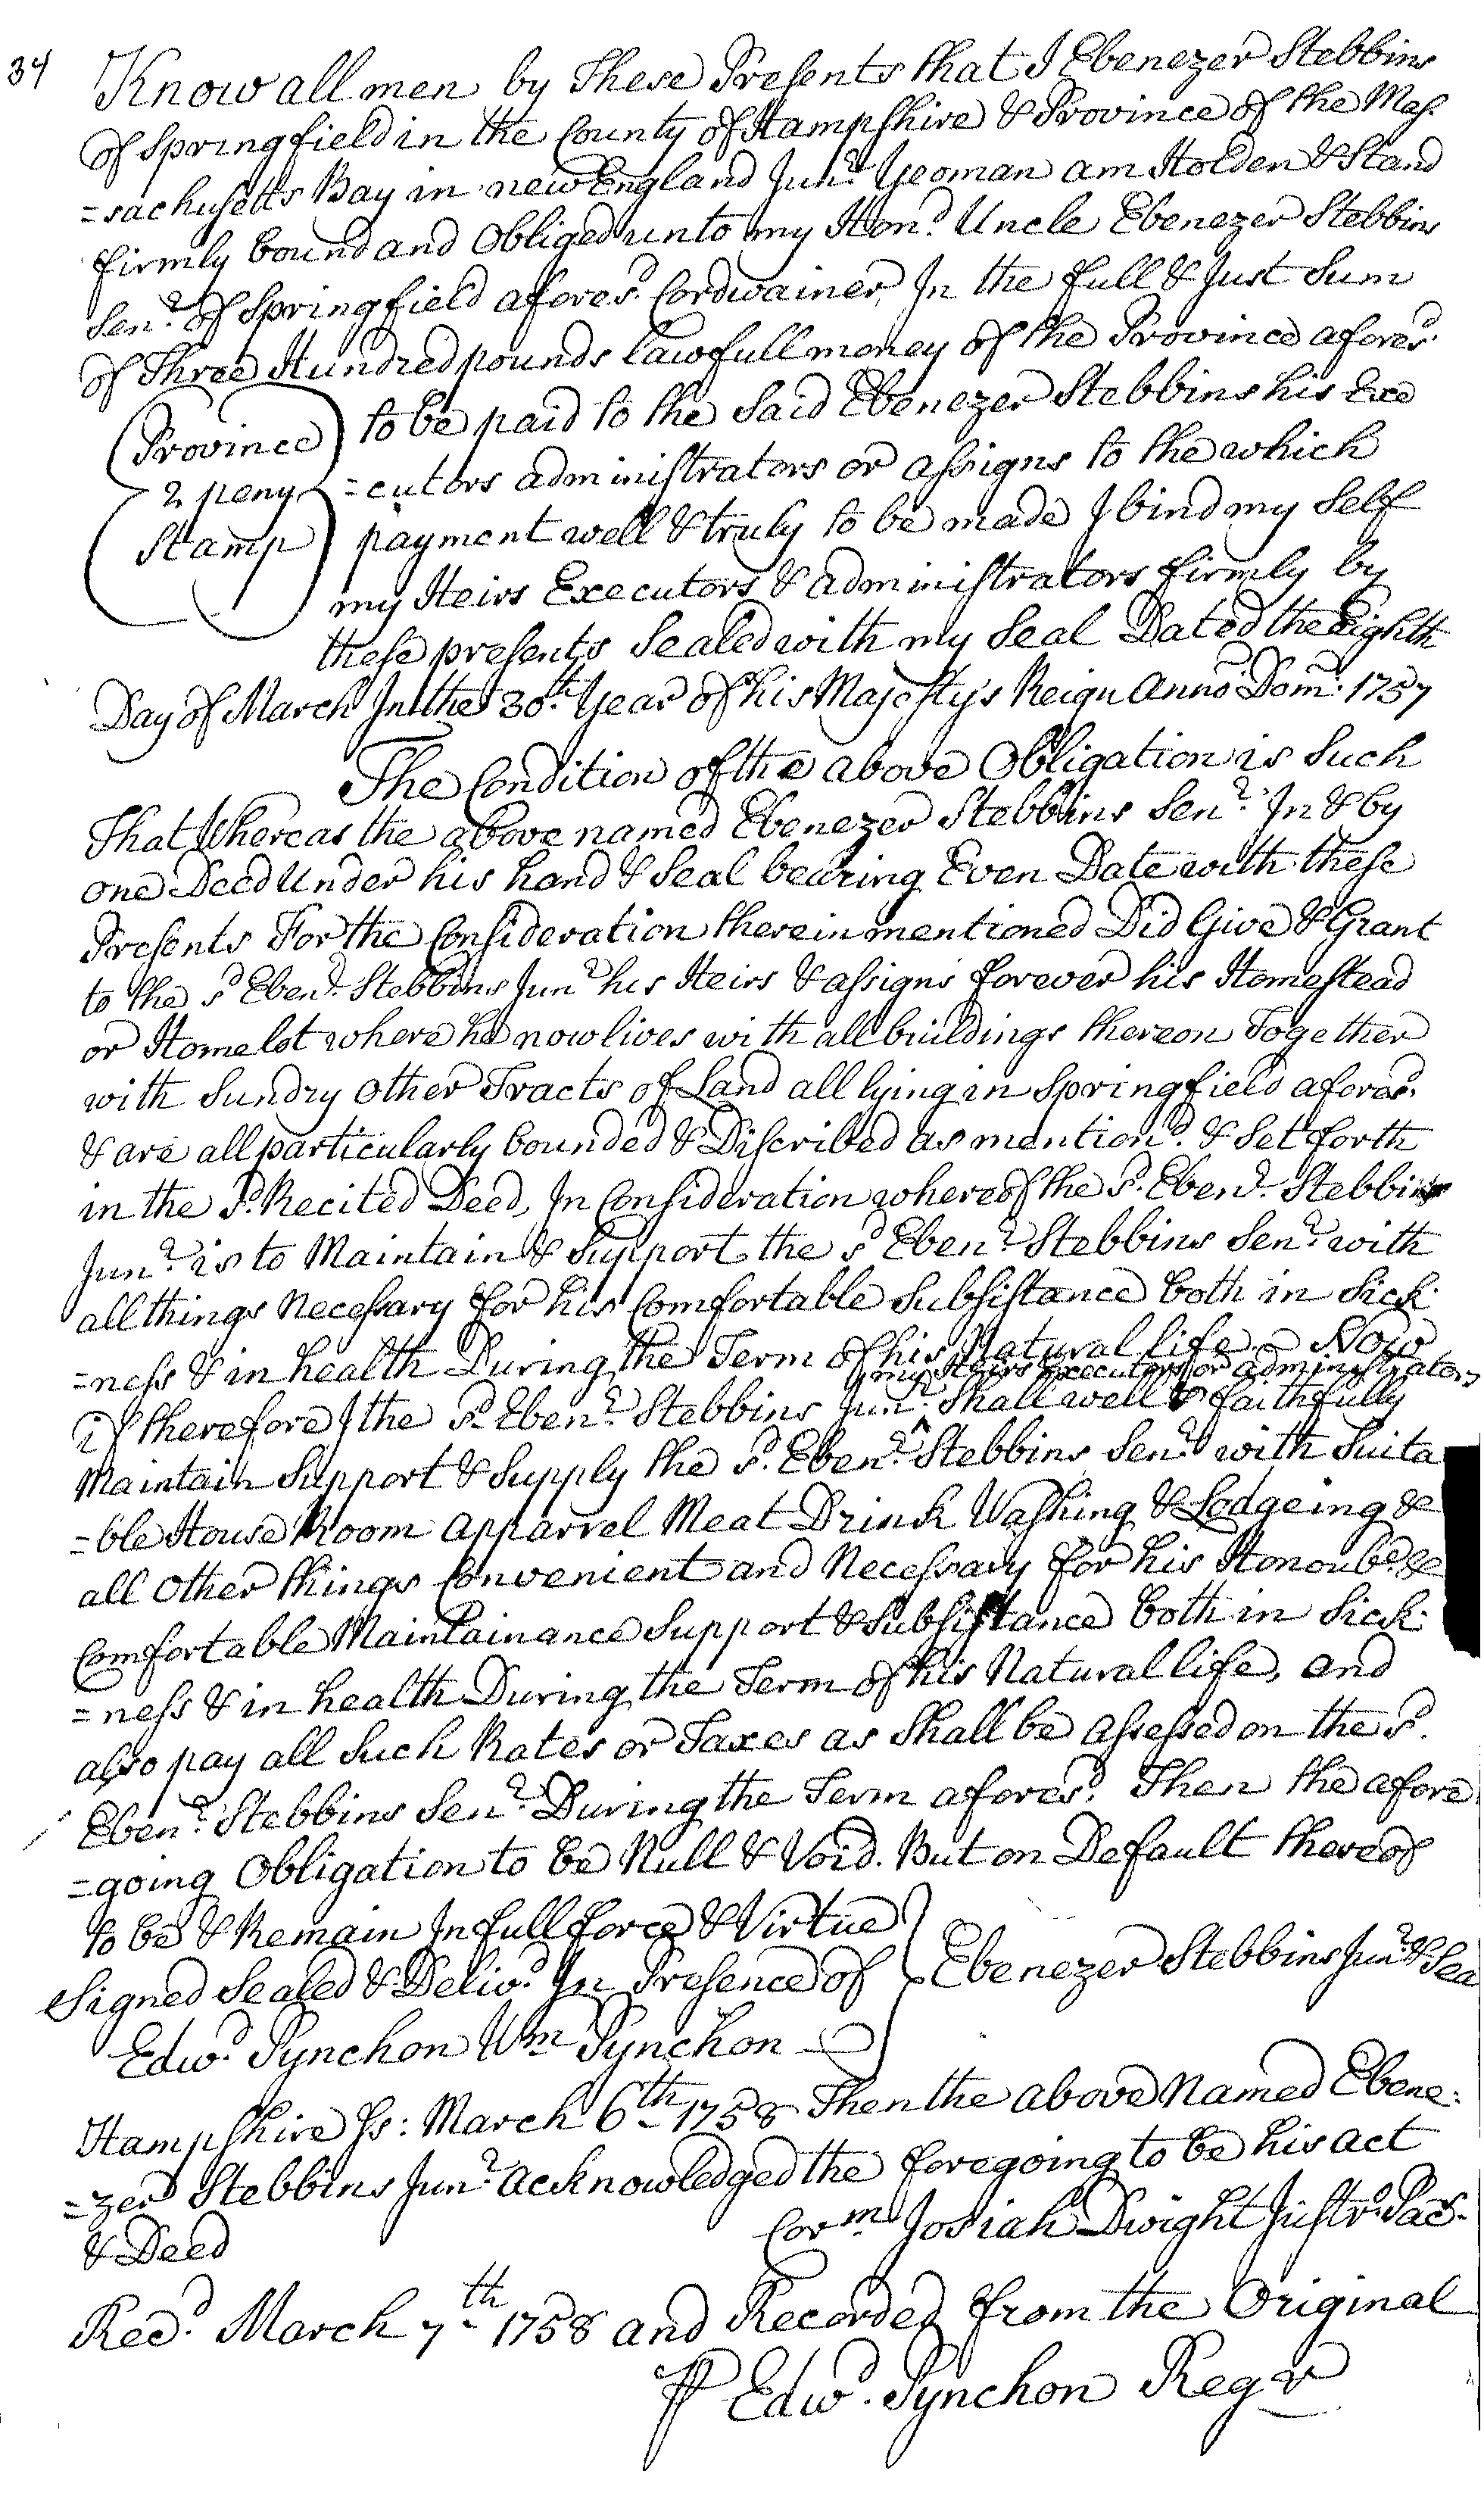 34
Know all men by These Presents that I Ebenezer Stebbins
of Springfield in the County of Hampshire & Province of the Mas-
=sachusetts Bay in new England Junr. Yeoman am Holden & Stand
firmly bound and Obliged unto my Hond. Uncle Ebenezer Stebbins
Senr. of Springfield aforesd. Cordwainer, In the full & Just Sum
of Three Hundred pounds lawfull money of the Province aforesd.
to be paid to the Said Ebenezer Stebbins his Exe
=cutors administrators or assigns to the which
payment well & truly to be made I bind my Self
my Heirs Executors & administrators firmly by
these presents Sealed with my Seal Dated the Eighth
Province
2 peny
Stamp
Day of March In the 30th. Year of his Majesty's Reign Anno Dom: 1757
The Condition of the above Obligation is Such
That Whereas the above named Ebenezer Stebbins Senr. In & by
one Deed Under his hand & Seal bearing Even Date with these
Presents For the Consideration therein mentioned Did Give & Grant
to the sd. Ebenr. Stebbins Junr. his Heirs & assigns forever his Homestead
or Homelot where he now lives with all buildings thereon Together
with Sundry Other Tracts of Land all lying in Springfield aforesd.
& are all particularly bounded & Discribed as mentiond. & Set forth
in the sd. Recited Deed, In Consideration whereof the sd. Ebenr. Stebbins
Junr. is to Maintain & Support the sd. Ebenr. Stebbins Senr. with
all things Necessary for his Comfortable Subsistance both in Sick-
=ness & in health During the Term of his Natural life Now
my Heirs Executors or administrators
if therefore I the sd. Ebenr. Stebbins Junr. ^ Shall well & faithfully
Maintain Support & Supply the sd. Ebenr. Stebbins Senr. with Suita
=ble House Room apparrel Meat Drink Washing & Lodgeing &
all Other things Convenient and Necessary for his Honoube. &
Comfortable Maintainance Support & Subsistance both in Sick-
=ness & in health During the Term of his Natural life, and
also pay all Such Rates or Taxes as Shall be assessed on the sd.
Ebenr. Stebbins Senr. During the Term aforesd. Then the afore
=going Obligation to be Null & Void. But on Default thereof
to be & Remain In full force & Virtue
Signed Sealed & Delivd. In Presence of
Edwd. Pynchon Wm Pynchon
Ebenezer Stebbins Junr. & Sea
Hampshire Ss: March 6th. 1758 Then the above Named Ebene-
=zer Stebbins Junr. acknowledged the foregoing to be his act
& Deed
Corm. Josiah Dwight Justs. Pac.
Recd. March 7th. 1758 and Recorded from the Original
P Edwd. Pynchon Regr